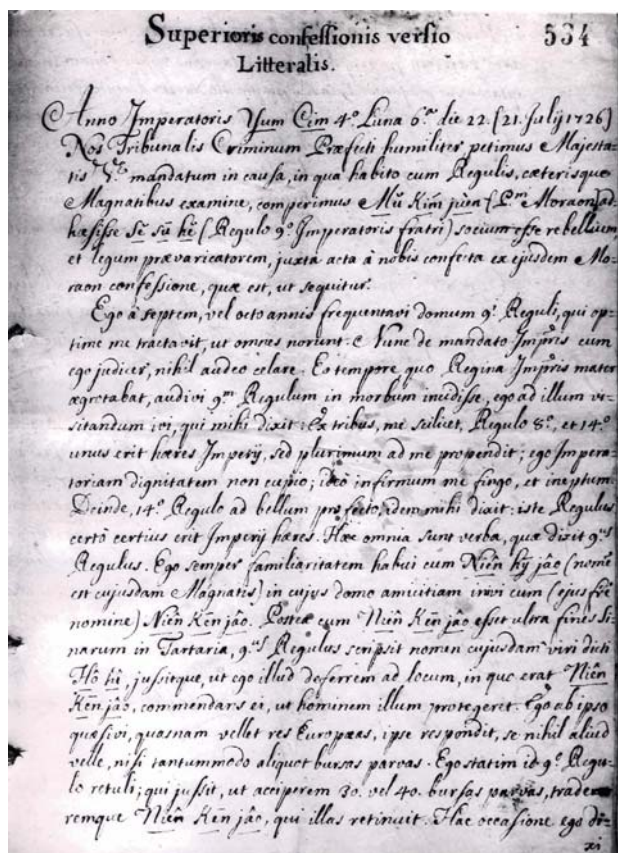 Superioris confessionis versio 534
Litteralis.
Anno Imperatoris Yum Cim 4º Luna 6ª die 22. [21. Julij 1726]
Nos Tribunalis Criminum Præfecti humiliter petimus Majesta-
tis mandatum in causa, in qua habito cum Regulis, cæterisque
Magnatibus examine, comperimus Mŭ Kim juen (P.m Moraon) ad-
hæsisse Sĕ sŭ hĕ (Regulo 9º Imperatoris fratri) socium esse rebellium
et legum prævaricatorem, juxta acta à nobis confecta ex ejusdem Mo-
raon confessione, quæ est, ut sequitur.
Ego à septem, vel octo annis frequentavi domum 9i Reguli, qui op-
time me tractavit, ut omnes norunt. Nunc de mandato Impris cum
ego judicer, nihil audeo celare. Eo tempore quo Regina Impris mater
ægrotabat, audivi 9m Regulum in morbum incidisse, ego ad illum vi-
sitandum ivi, qui mihi dixit: Ex tribus, me scilicet, Regulo 8º, et 14º
unus erit hæres Imperij, sed plurimum ad me propendit; ego Impera-
toriam dignitatem non cupio; ideò infirmum me fingo, et ineptum.
Deinde, 14º Regulo ad bellum profecto, idem mihi dixit: iste Regulus
certò certius erit Imperij hæres. Hæc omnia sunt verba, quæ dixit 9us
Regulus. Ego semper familiaritatem habui cum Niên hÿ jâo (nomē
est cujusdam Magnatis) in cujus domo amicitiam inivi cum (ejus frē
nomine) Niên Kēn jâo. Posteà cum Niên Kēn jâo esset ultra fines Si-
narum in Tartaria, 9us Regulus scripsit nomen cujusdam viri dicti
Hô tû, jussitque, ut ego illud deferrem ad locum, in quo erat Niên
Kēn jâo, commendans ei, ut hominem illum protegeret. Ego ab ipso
quæsivi, quasnam vellet res Europæas, ipse respondit, se nihil aliud
velle, nisi tantummodo aliquot bursas parvas. Ego statim id 9º Regu-
lo retuli; qui jussit, ut acciperem 30. vel 40. bursas parvas, trade-
remque Niên Kēn jâo, qui illas retinuit. Hac occasione ego di-
xi